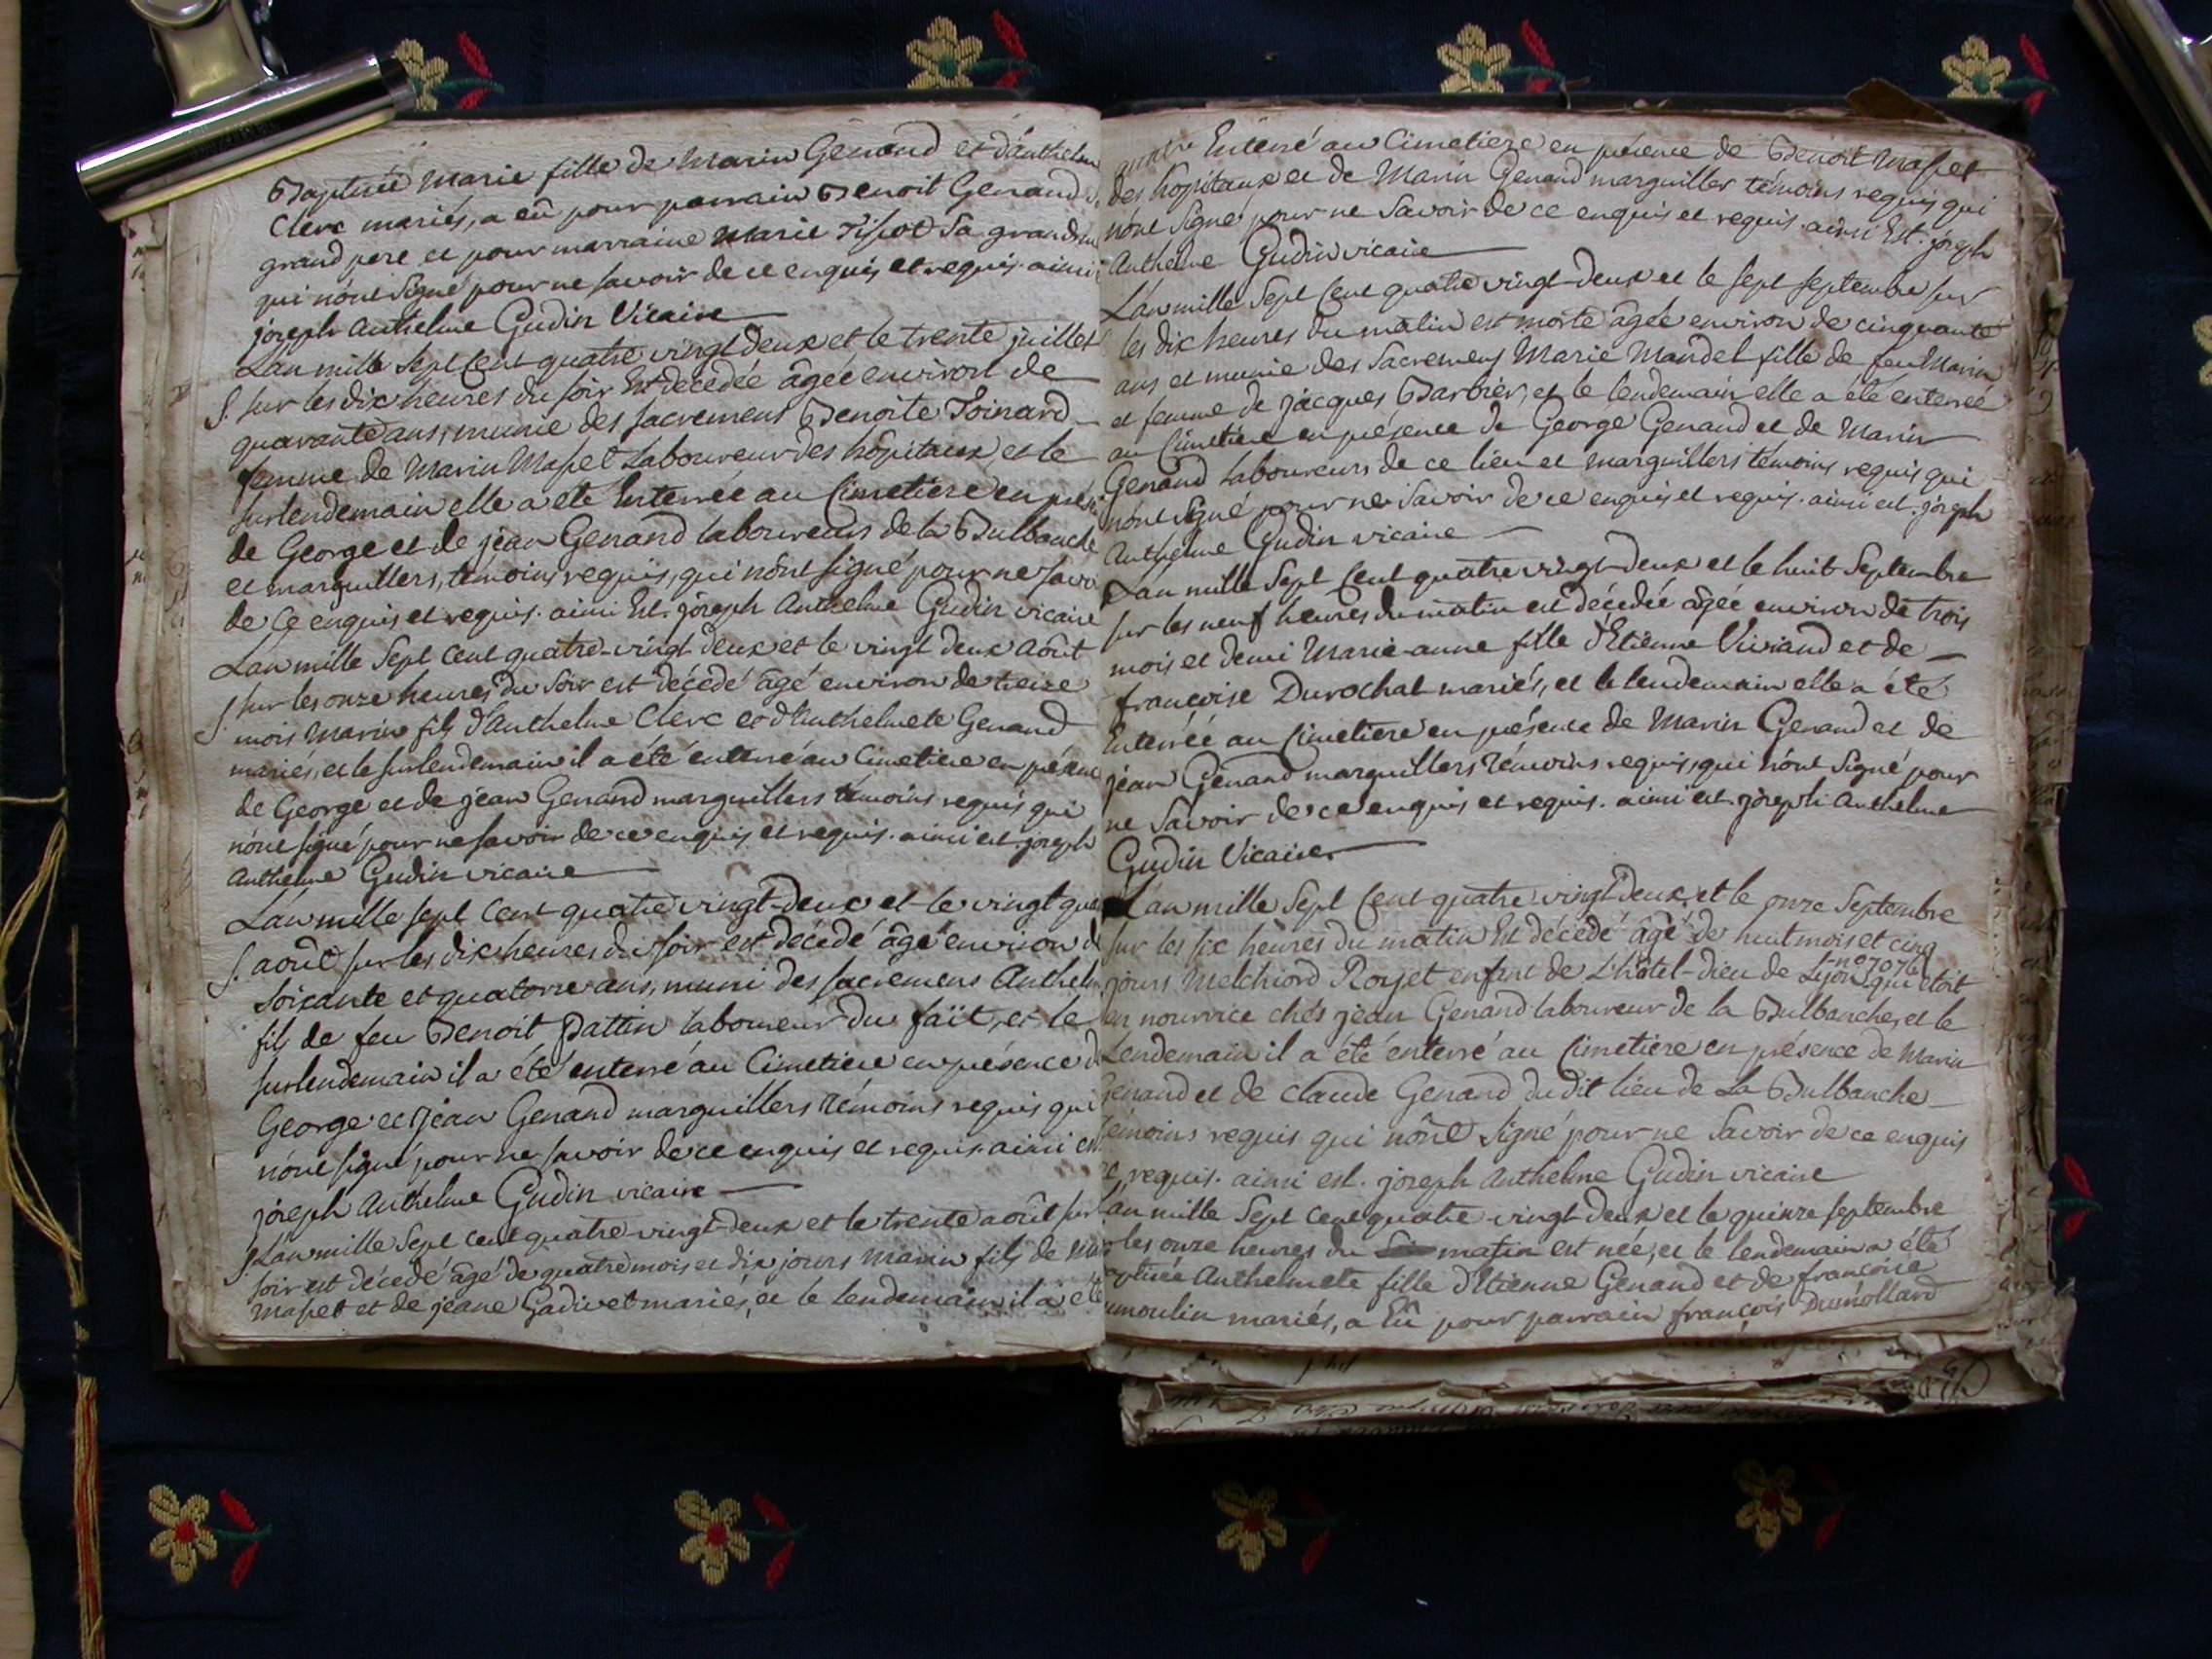 Baptisée Marie fille de Marin Genand et d'anthelm
Clerc mariés, a eû pour parrain Benoit Genand
grand pere et pour marraine Marie Tissot Sa grand
qui n'ont Signé pour ne savoir de ce enquis et requis. ainsi
joseph Anthelme Gudin Vicaire
L'an mille Sept Cent quatre vingt deux et le trente juillet
S. sur les dix heures du soir Est decedée âgée environ de
quarante ans, munie des sacremens Benoite Poinard
femme de Marin Maset Laboureur des hôpitaux et le
surlendemain elle a eté Enterrée au Cimetiere en prés
de George et de jean Genand laboureurs de la Bulbanche
et marguillers, temoins requis, qui n'ont signé pour ne savo
de Ce enquis et requis. ainsi Est. joseph Anthelme Gudin vicaire
L'an mille Sept Cent quatre-vingt deux et le vingt deux Août
S. sur les onze heures du Soir est décédé âgé environ de treize
mois Marin fils d'Anthelme Clerc et d'Anthelmete Genand
mariés, et le surlendemain il a été enterré au Cimetiere en présence
de George et de jean Genand marguillers témoins requis qui
n'ont signé pour ne savoir de ce enquis et requis. ainsi est. joseph
Anthelme Gudin vicaire
L'an mille sept Cent quatre vingt-deux et le vingt qua
S. août sur les dix heures du soir est décédé âgé environ d
soixante et quatorze ans, muni des sacremens Anthelm
fils de feu Benoit Pattin laboureur du faït, et le
surlendemain il a été enterré au Cimetiere en présence d
George et jean Genand marguillers témoins requis qui
n'ont signé pour ne savoir de ce enquis et requis. ainsi est
joseph Anthelme Gudin vicaire
S. L'an mille Sept Cent quatre-vingt-deux et le trente août sur
soir est décedé âgé de quatre mois et dix jours Marin fils de Ma
Maset et de jeane Gadivet mariés, et le lendemain il a été
Enterré au Cimetiere en présence de Benoit Maset
des hôpitaux et de Marin Genand marguiller témoins requis qui
n'ont Signé pour ne Savoir de ce enquis et requis. ainsi Est. joseph
Anthelme Gudin vicaire
L'an mille Sept Cent quatre vingt-deux et le sept septembre sur
les dix heures du matin est morte âgée environ de cinquante
ans et munie des Sacremens Marie Mandel fille de feu Marin
et femme de jacques Barbier, et le lendemain elle a été enterrée
au Cimetiere en présence de George Genand et de Marin
Genand laboureurs de ce lieu et marguillers témoins requis qui
n'ont signé pour ne savoir de ce enquis et requis. ainsi est. joseph
Anthelme Gudin vicaire
L'an mille Sept Cent quatre vingt-deux et le huit Septembre
sur les neuf heures du matin est décédée âgée environ de trois
mois et demi Marie-anne fille d'Etienne Viviand et de
françoise Durochat mariés, et le lendemain elle a été
Enterrée au Cimetiere en présence de Marin Genand et de
jean Genand marguillers témoins requis, qui n'ont Signé pour
ne Savoir de ce enquis et requis. ainsi est. joseph Anthelme
Gudin Vicaire
L'an mille Sept Cent quatre vingt-deux, et le onze Septembre
sur les six heures du matin Est décédé âgé de huit mois et cinq
jours Melchiord Royet enfant de L'hôtel-Dieu de Lyon n° 7076 qui étoit
en nourrice chés jean Genand laboureur de la Bulbanche, et le
Lendemain il a été enterré au Cimetiere en présence de Marin
Genand et de Claude Genand du dit lieu de La Bulbanche
témoins requis qui n'ont Signé pour ne Savoir de ce enquis
et requis. ainsi est. joseph Anthelme Gudin vicaire
L'an mille Sept Cent quatre vingt-deux et le quinze septembre
les onze heures du matin est née, et le lendemain a été
aptisée Anthelmete fille d'Etienne Genand et de francoise
umoulin mariés, a Eû pour parrain francois Dumollard